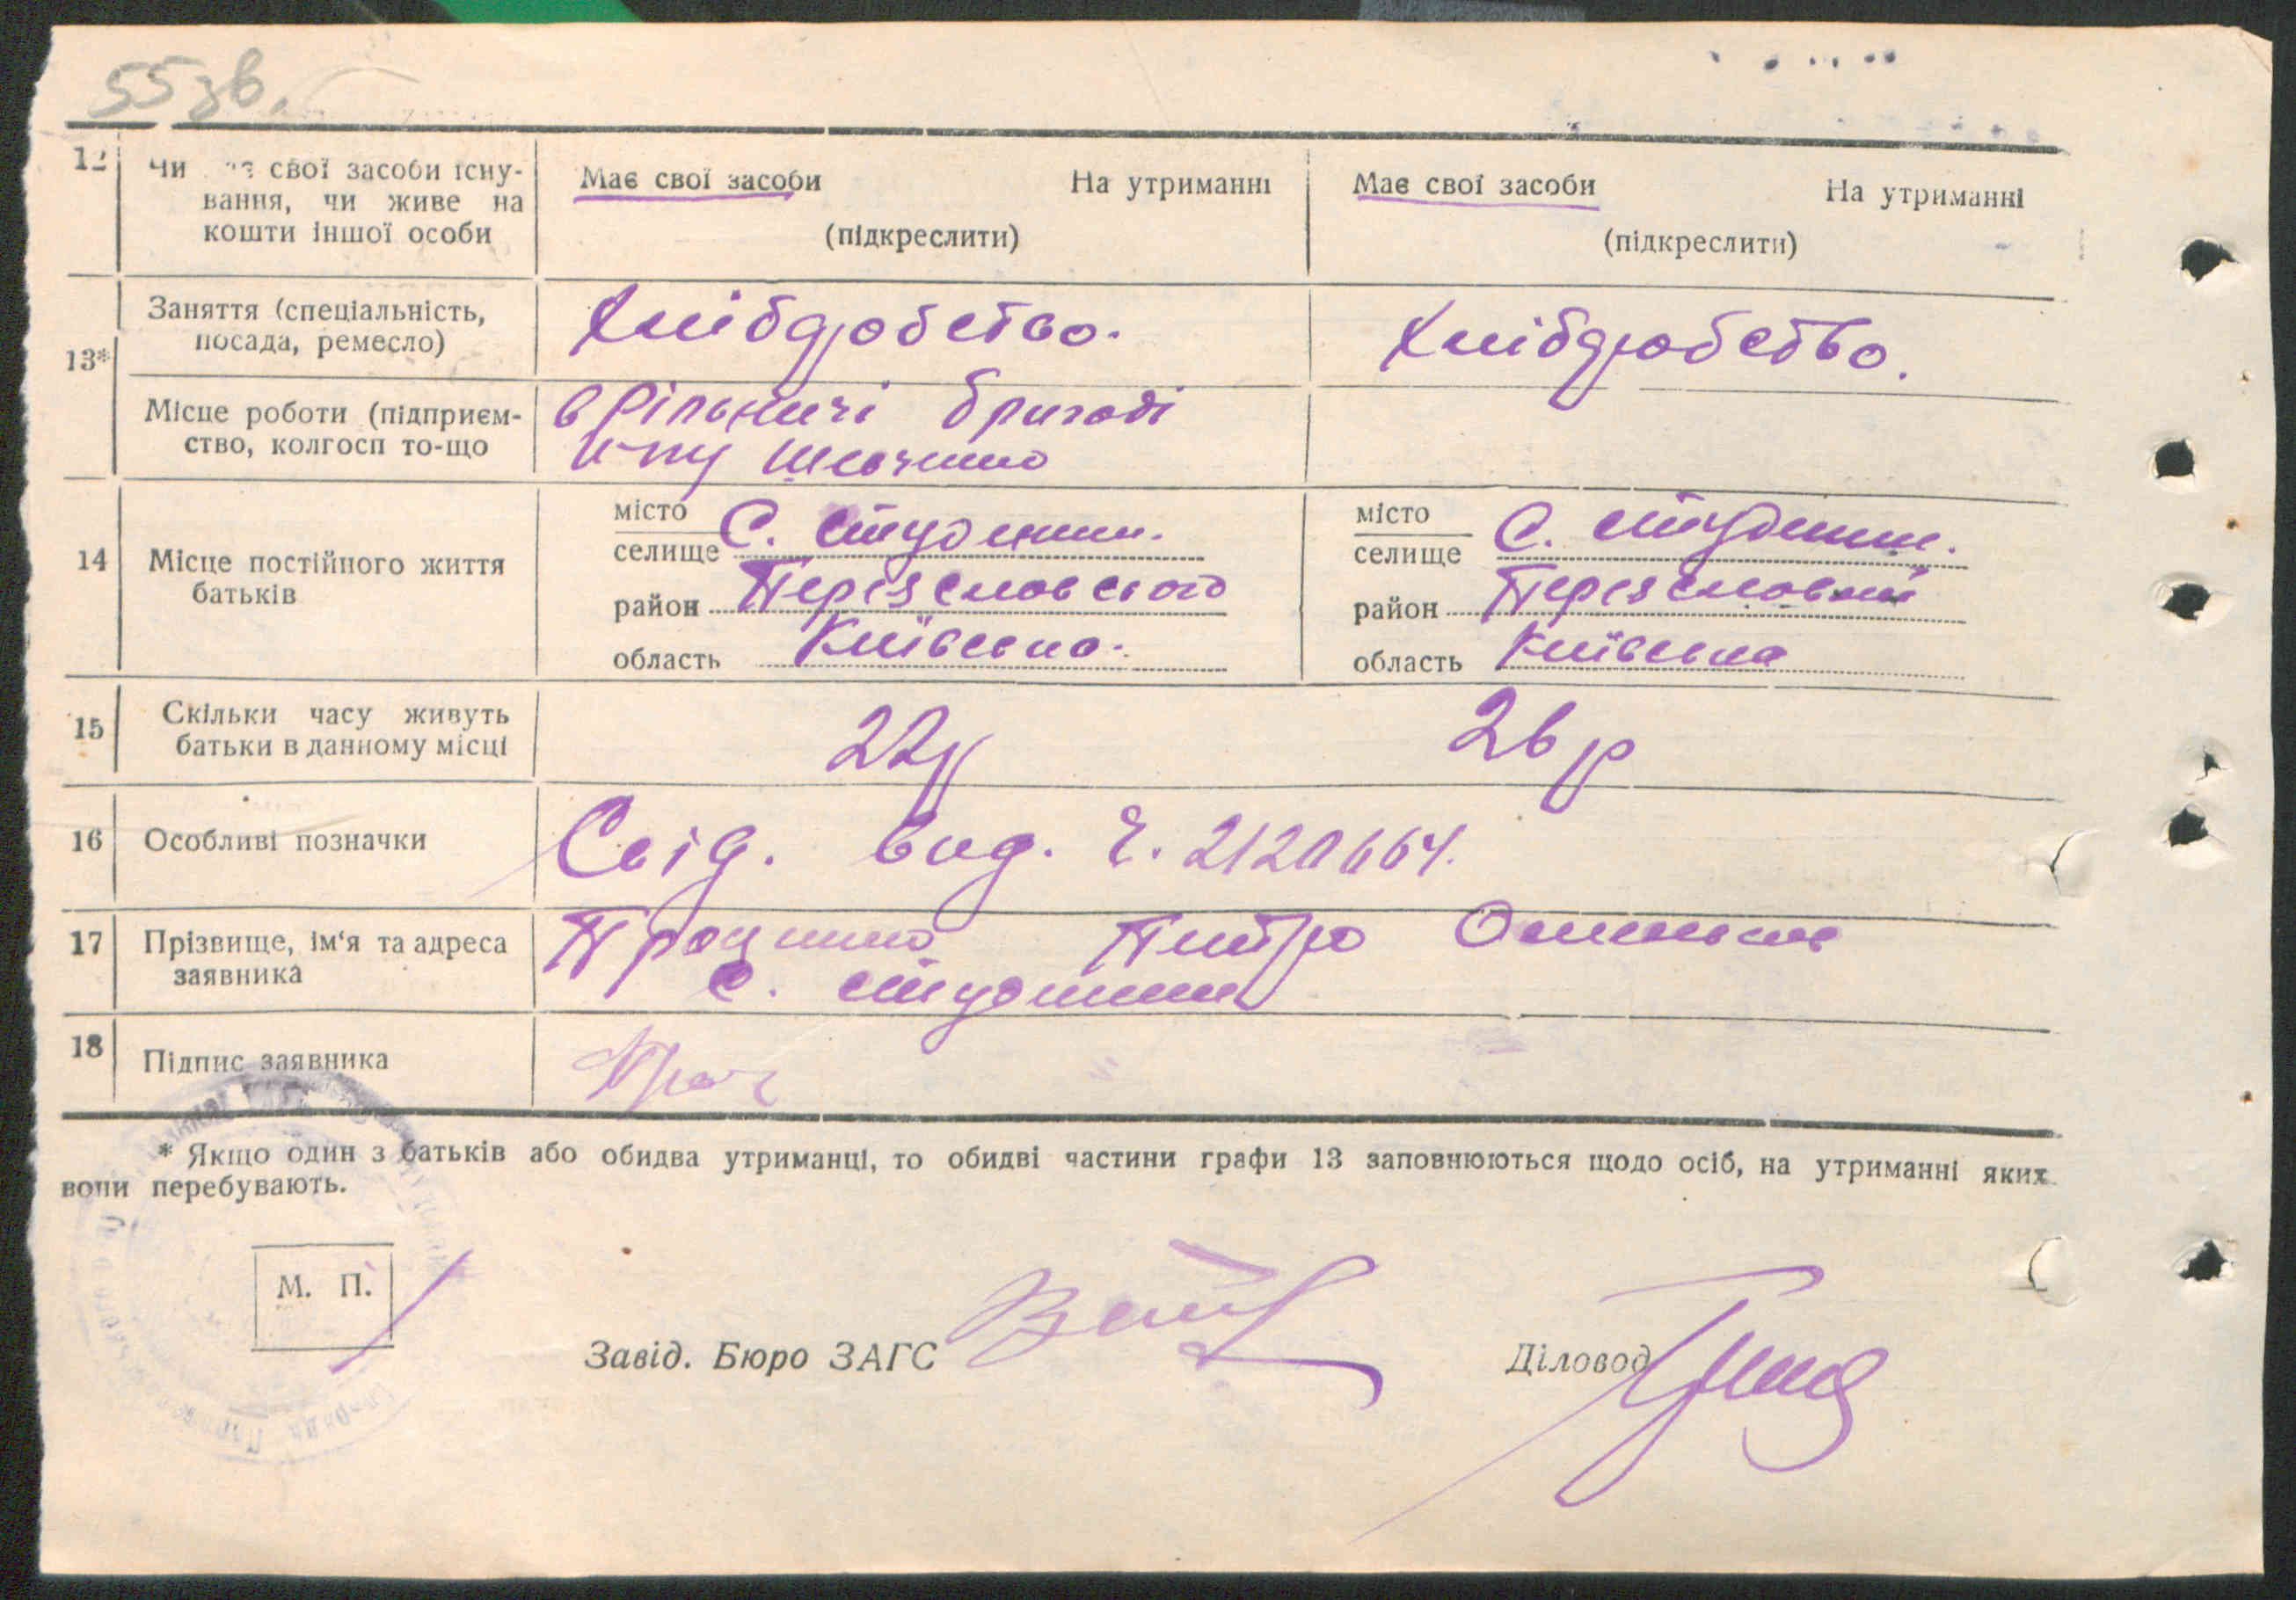 55 зв.
12 Чи має свої засоби існу-
вання, чи живе на
кошти іншої особи
Має свої засоби На утриманні
(підкреслити)
Має свої засоби На утриманні
(підкреслити)
13*
Заняття (спеціальність,
посада, ремесло)
Хлібдробство.
Хлібдробство.
Місце роботи (підприєм-
ство, колгосп то-що
в рільничі бригаді
14 Місце постійного життя
батьків
місто
селище С. Студеники.
район Переяславського
область Київська.
місто
селище С. Студеники.
район Переяславський
область Київська
15 Скільки часу живуть
батьки в данному місці
22р
26 р
16 Особливі позначки
Свід. вид. ч.
17 Прізвище, ім‘я та адреса
заявника
Проценко
с. Студеники
18 Підпис заявника
* Якщо один з батьків або обидва утриманці, то обидві частини графи 13 заповнюються щодо осіб, на утриманні яких
вони перебувають.
М. П.
Завід. Бюро ЗАГС
Діловод